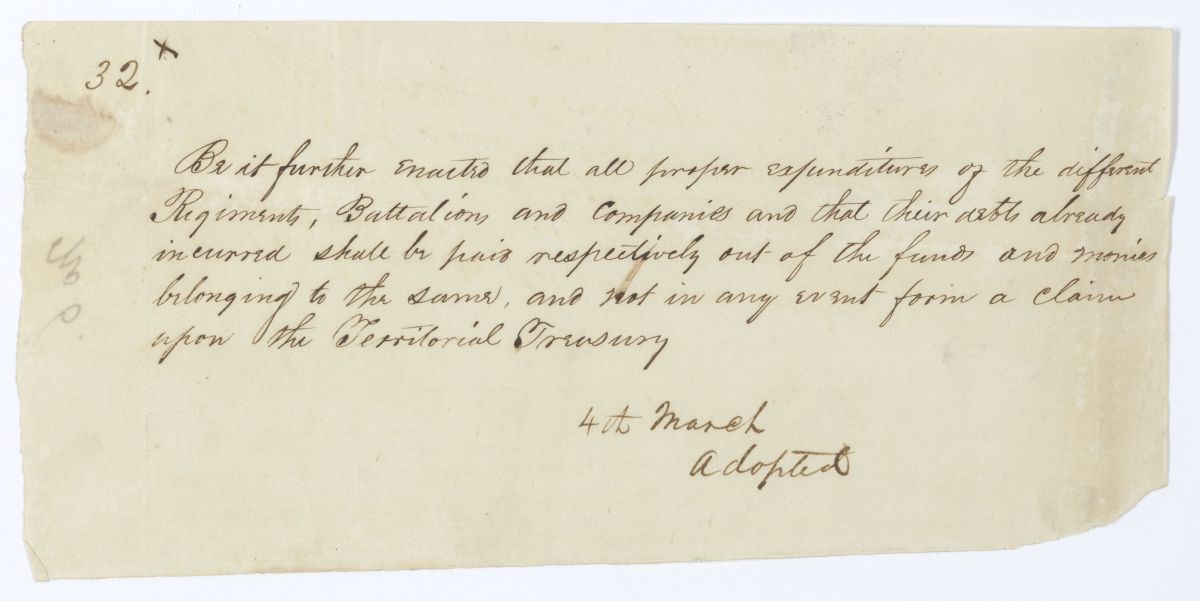 32. x
Be it further enacted that all proper expenditures of the different
Regiments, Battalions and Companies and that their debts already
incurred shall be paid respectively out of the funds and monies
belonging to the same, and not in any event form a claim
upon the Territorial Treasury
4th March
Adopted